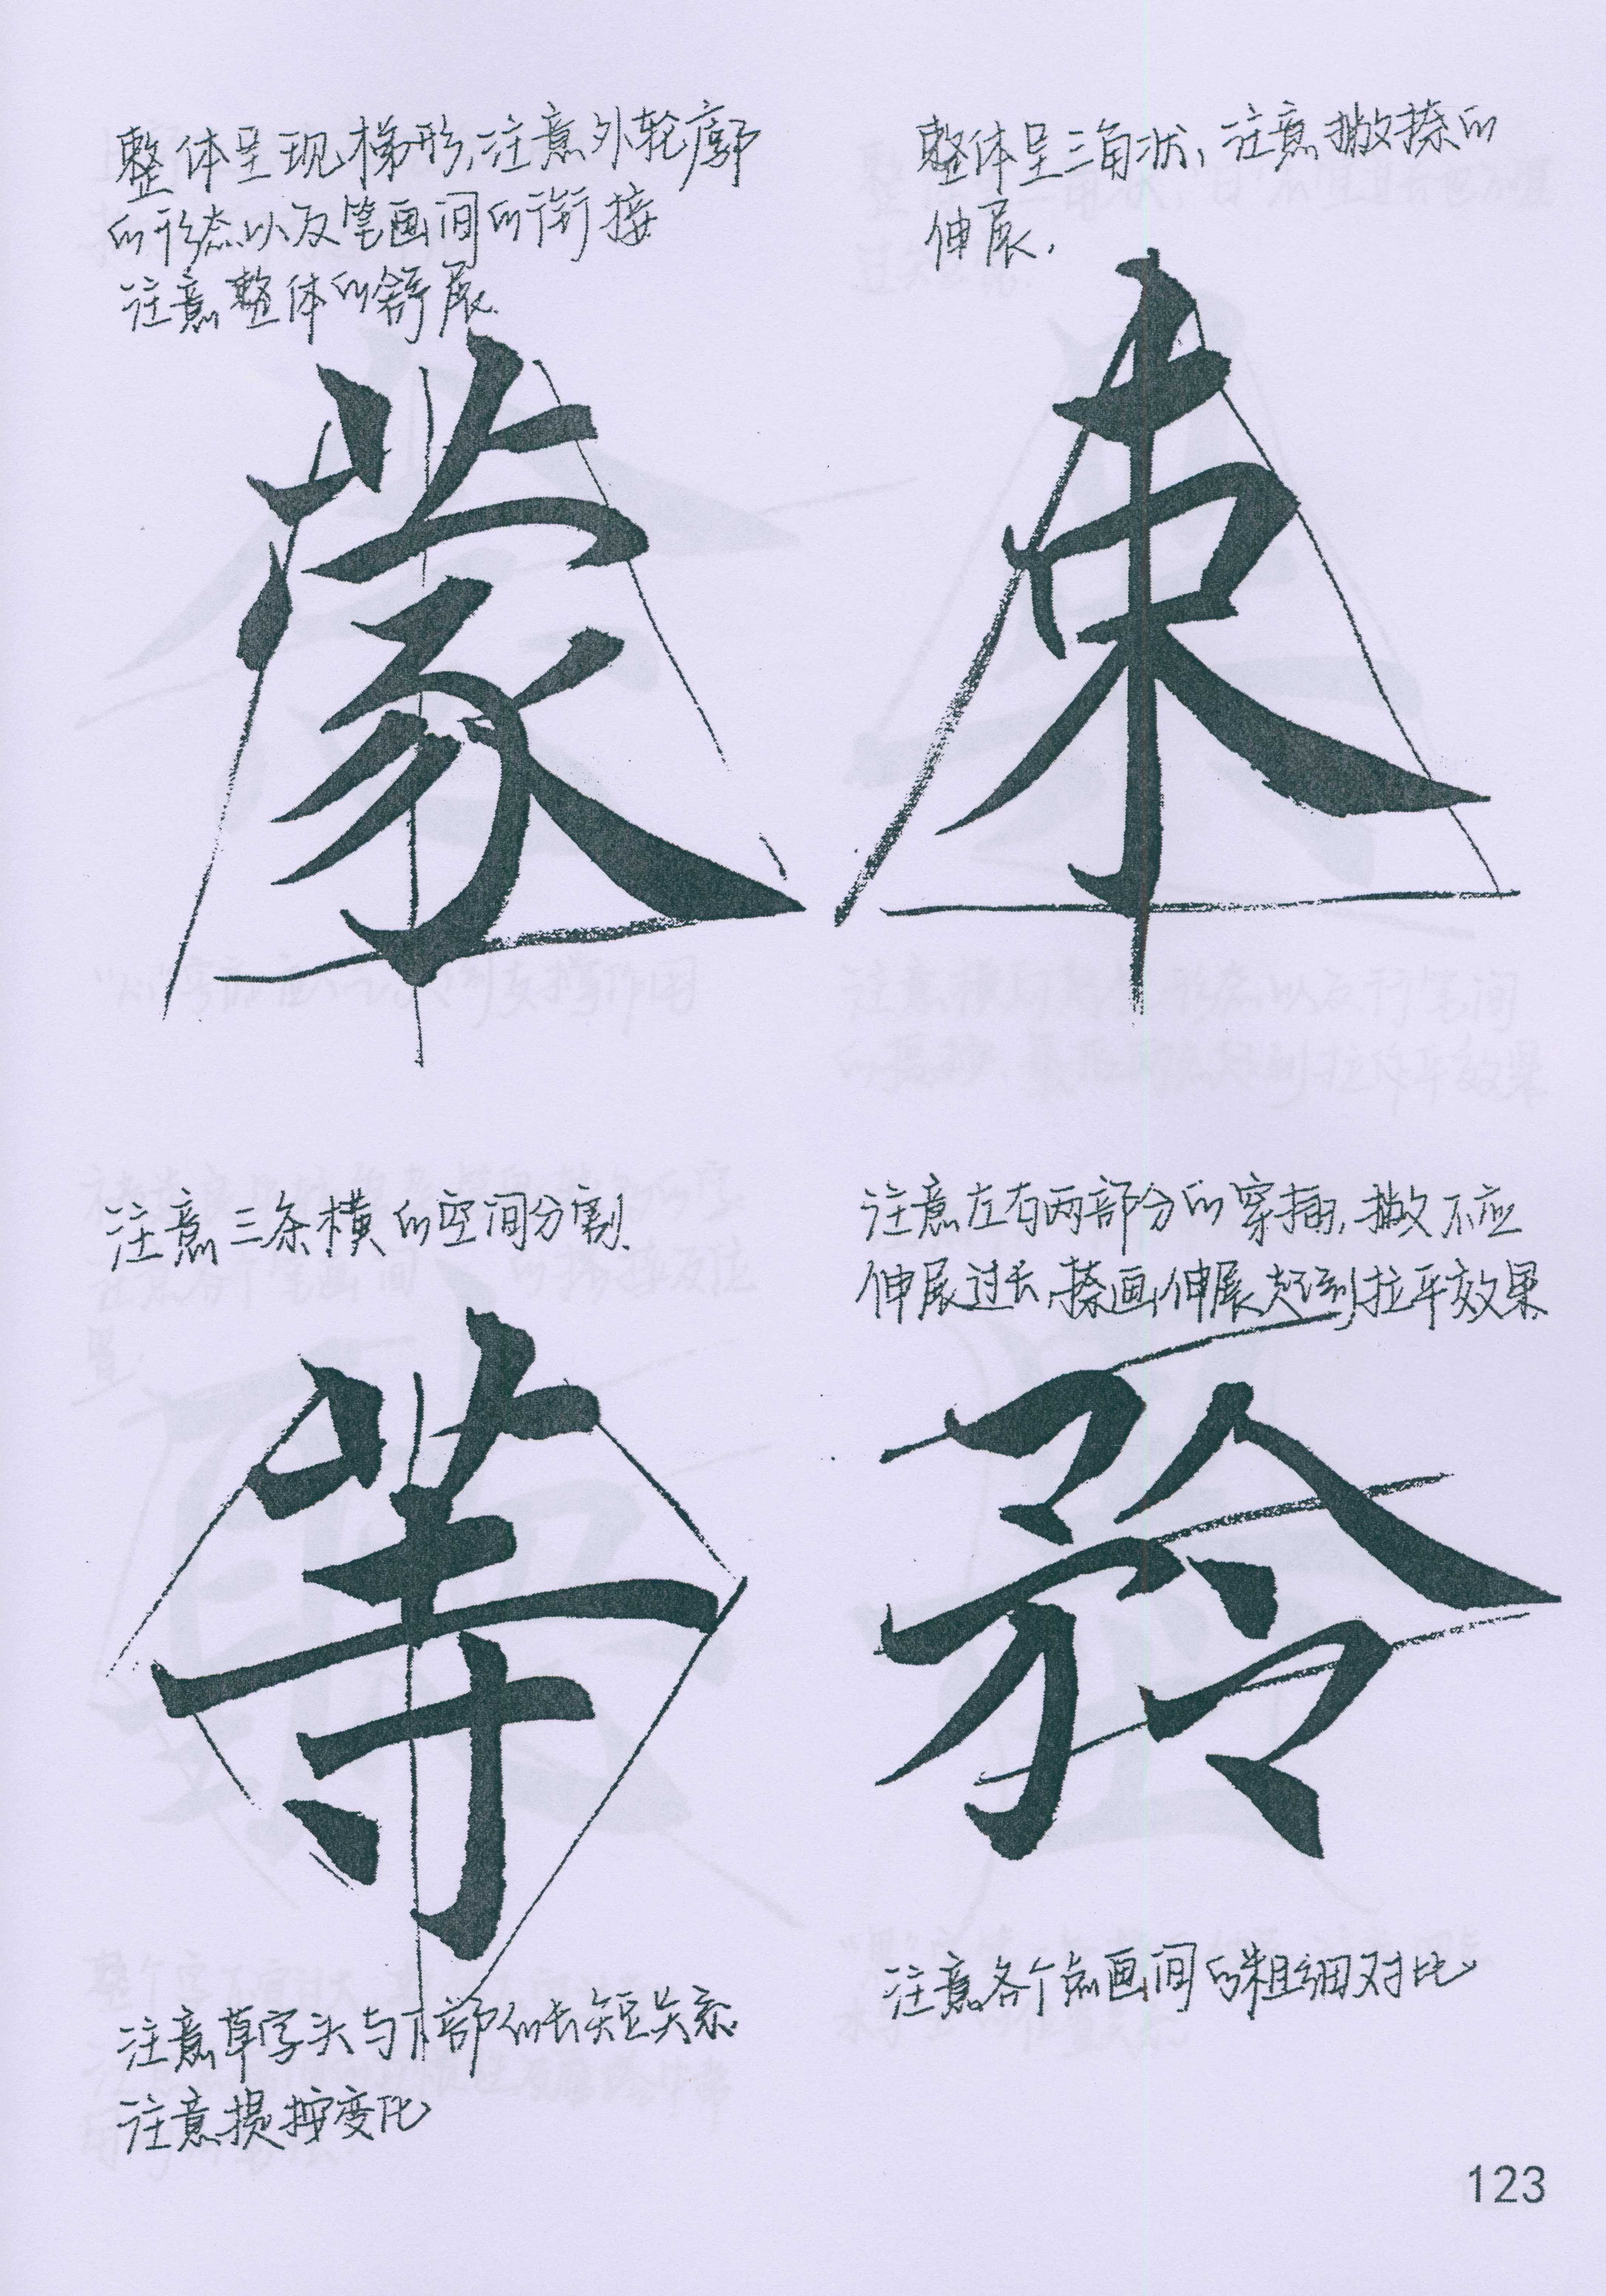 整体呈现梯形,注意外轮廓
的形态以及笔画间的衔接
注意整体的舒展.
蒙
整体呈三角状,注意撇捺的
伸展.
束
注意三条横的空间分割.
等
注意草字头与下部的长短关系.
注意提按变化
注意左右两部分的穿插,撇不应
伸展过长,捺画伸展起到拉平效果.
矜
注意各个点画间的粗细对比
123